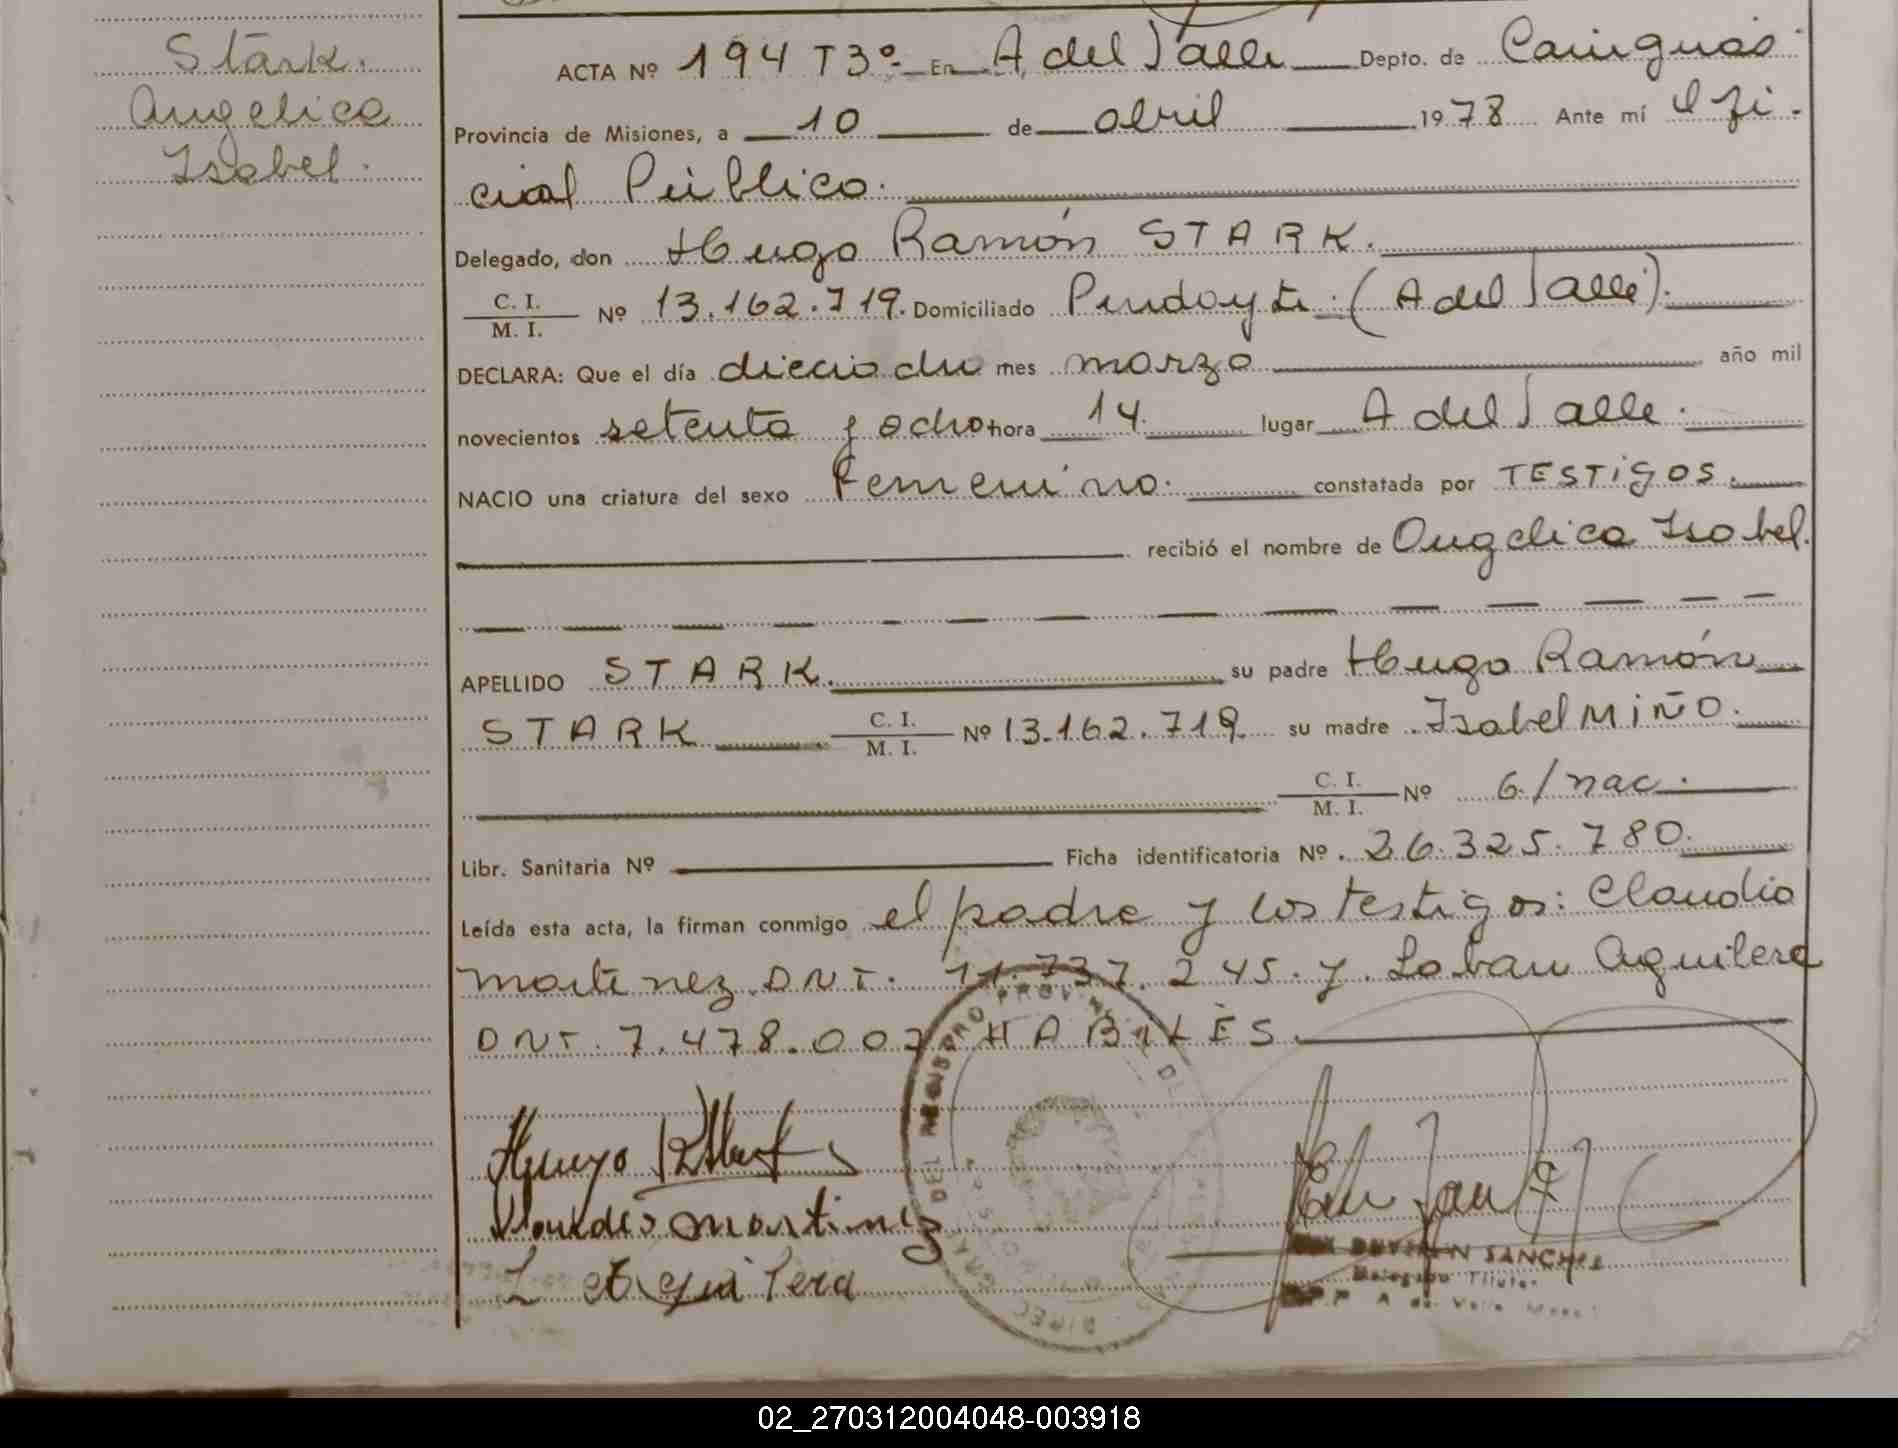 Stark.
Angelica
Isabel.
ACTA Nº 194 T3º- En A del Valle Depto. de Cainguás
Provincia de Misiones, a 10 de abril 1978 Ante mí Ofi-
cial Público.
Delegado, don Hugo Ramón STARK.
C. I.
M. I. Nº 13.162.719. Domiciliado Pindoyti. (A del Valle).
DECLARA: Que el día dieciocho mes marzo año mil
novecientos setenta y ocho hora 14. lugar A del Valle.
NACIO una criatura del sexo Femenino. constatada por TESTIGOS.
recibió el nombre de Angelica Isabel.
APELLIDO STARK. su padre Hugo Ramón
STARK C. I.
M. I. Nº 13.162.719 su madre Isabel MIÑO.
C. I.
M. I. Nº 6/nac.
Libr. Sanitaria Nº Ficha identificatoria Nº. 26.325.780.
Leída esta acta, la firman conmigo el padre y los testigos: Claudio
Martinez DNI. 11.737.245. y Laban Aguilera
DNI. 7.478.007 HABILES.
Hugo R Stark
Claudio Martinez
L Aguilera
DEL REGISTRO PROVIN
SANCHEZ
Delegado Titular
02_270312004048-003918